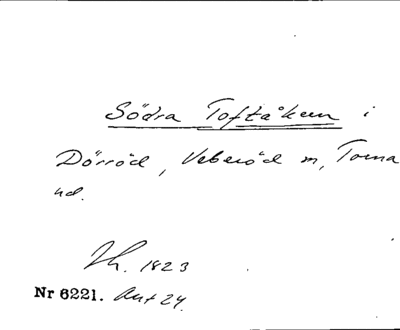 Södra Toftåkern i
Dörröd, Veberöd m, Torna
hd.
Th. 1823
Nr 6221. Aut 24.